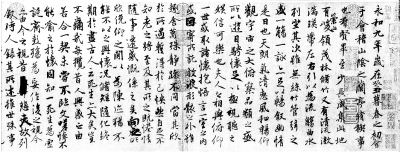 永和九年歲在癸丑暮春之初會
于會稽山陰之蘭亭脩稧事
也羣賢畢至少長咸集此地
有峻領茂林脩竹又有清流激
湍暎帶左右引以為流觴曲水
列坐其次雖無絲竹管弦之
盛一觴一詠亦足以暢敘幽情
是日也天朗氣清惠風和暢仰
觀宇宙之大俯察品類之盛
所以遊目騁懷足以極視聽之
娛信可樂也夫人之相與俯仰
一世或取諸懷抱悟言一室之內
或因寄所託放浪形骸之外雖
趣舍萬殊靜躁不同當其欣
於所遇蹔得於己怏然自足不
知老之將至及其所之既惓情
隨事遷感慨係之矣向之所
欣俛仰之閒以為陳迹猶不
能不以之興懷況脩短隨化終
期於盡古人云死生亦大矣豈
不痛哉每攬昔人興感之由
若合一契未嘗不臨文嗟悼不
能喻之於懷固知一死生為虛
誕齊彭殤為妄作後之視今
亦由今之視昔悲夫故列
敘時人錄其所述雖世殊事